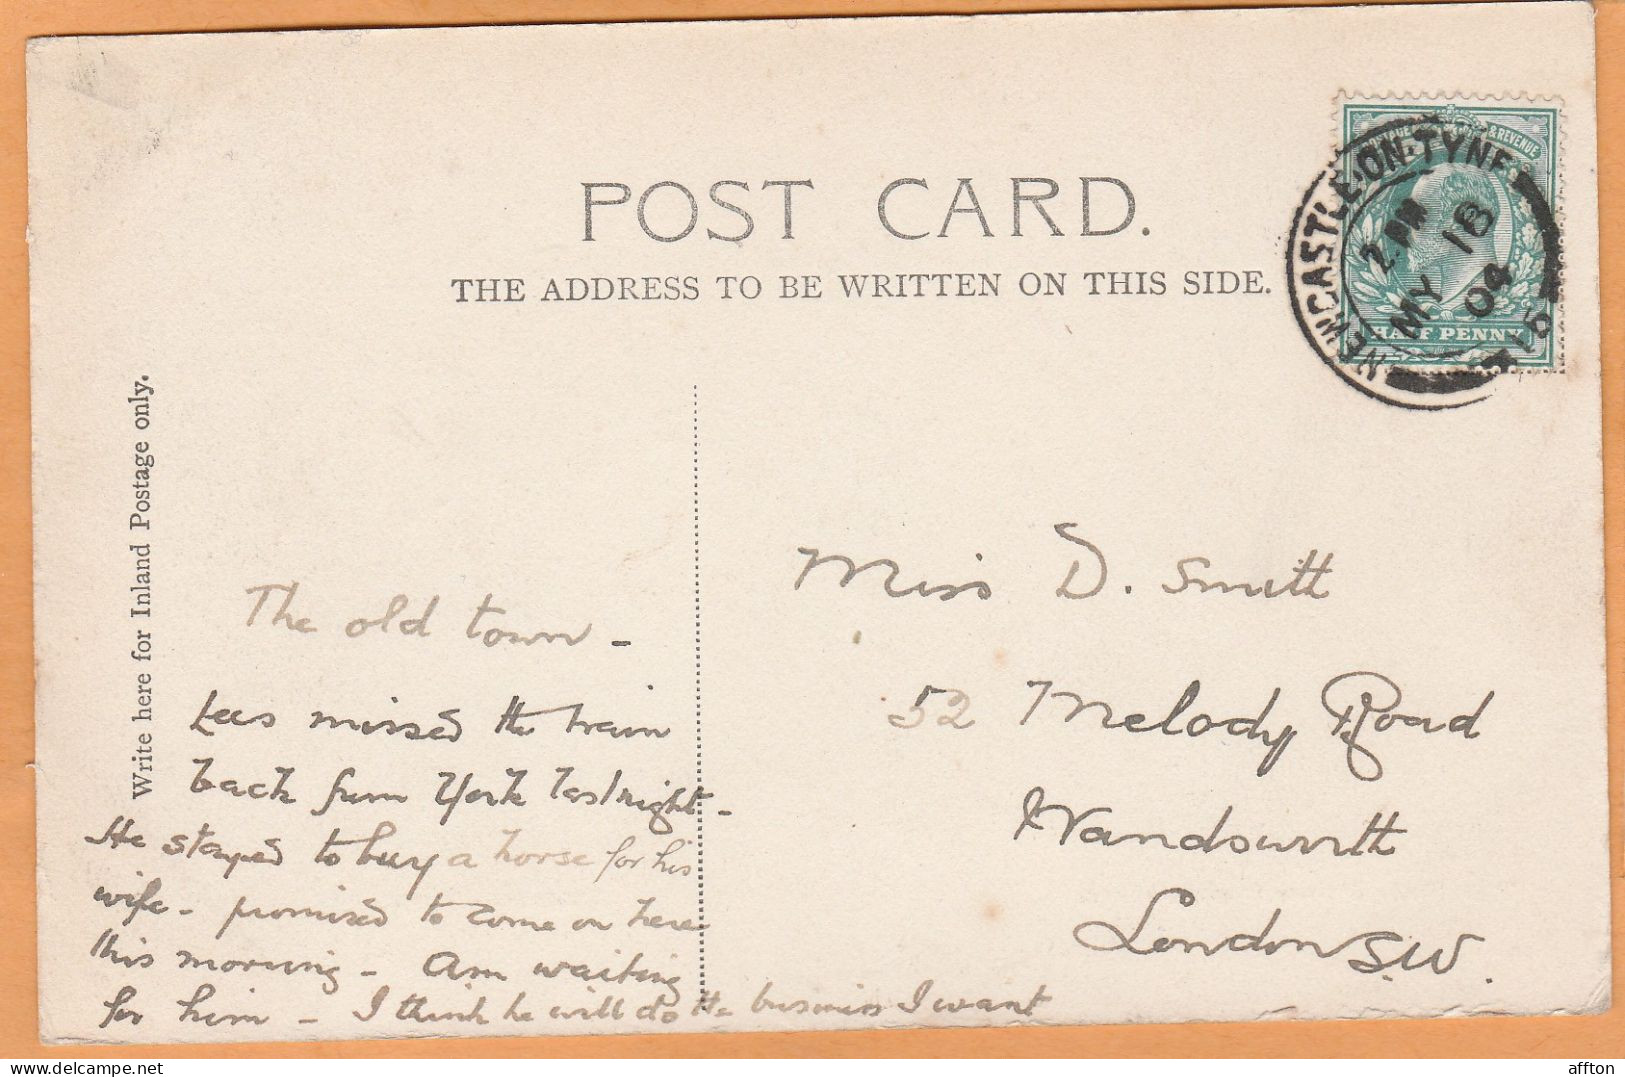 POST CARD.
THE ADDRESS TO BE WRITTEN ON THIS SIDE.
POSTAGE & REVENUE
NEWCASTLE-ON-TYNE
2 PM
MY 18
04
19
HALF PENNY
Write here for Inland Postage only.
The old town -
Lees missed the train
back from York last night -
He stayed to buy a horse for his
wife - promised to come on here
this morning - Am waiting
for him - I think he will do the business I want
Miss D. Smith
52 Melody Road
Wandsworth
London S.W.
affton
delcampe.net